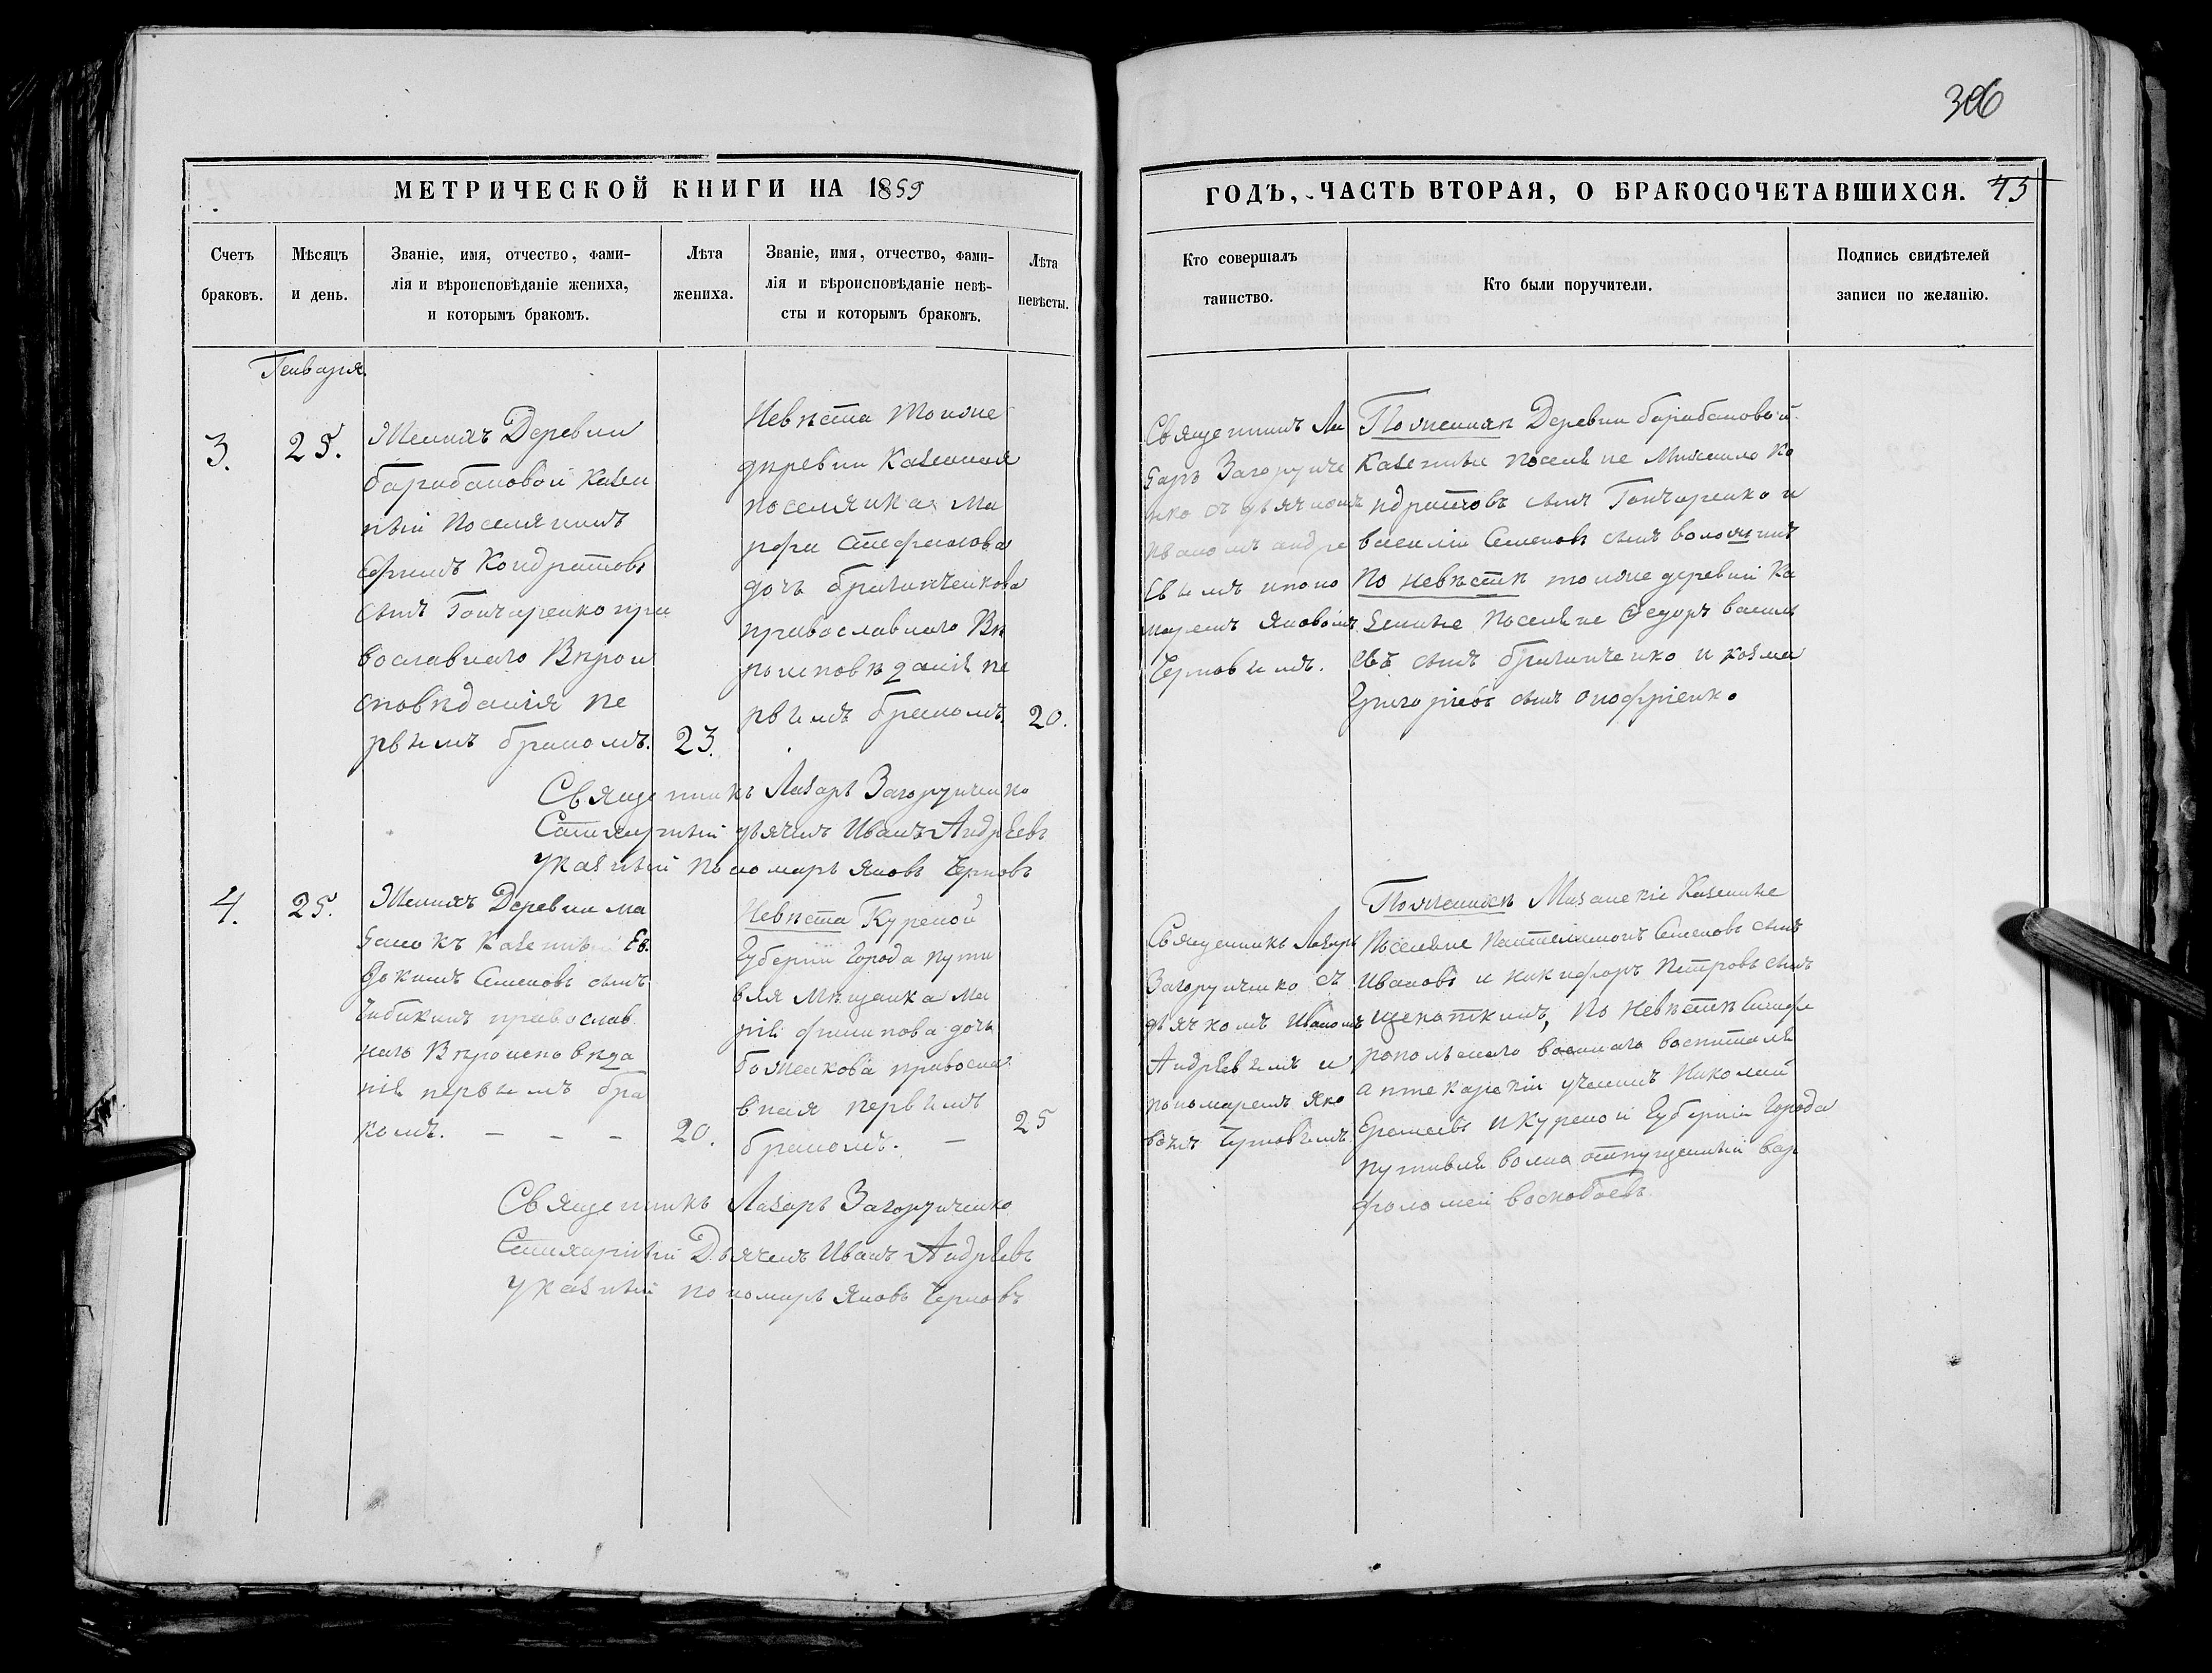 306
МЕТРИЧЕСКОЙ КНИГИ НА 1859
ГОДЪ, ЧАСТЬ ВТОРАЯ, О БРАКОСОЧЕТАВШИХСЯ. 43
Счетъ
браковъ.
Мѣсяцъ
и день.
Званіе, имя, отчество, фами-
лія и вѣроисповѣданіе жениха,
и которымъ бракомъ.
Лѣта
жениха.
Званіе, имя, отчество, фами-
лія и вѣроисповѣданіе невѣ-
сты и которымъ бракомъ.
Лѣта
невѣсты.
Кто совершалъ
таинство.
Кто были поручители.
Подпись свидѣтелей
записи по желанію.
Генваря
3.
25.
Женихъ Деревни
барабановой казен
ный поселянинъ
Кондратовъ
сынъ Гончаренко пра
вославнаго Вѣрои
сповѣданія пе
рвымъ бракомъ.
23.
Невѣста тойже
деревни казенная
поселянка Ма
рфа Стефанова
дочь
православнаго Вѣ
роисповѣданія пе
рвымъ бракомъ.
20.
Священникъ Ла
заръ Загоруйче
нко съ дьячкомъ
Иваномъ андре
евымъ и поно
маремъ Яковомъ
Черновымъ.
По женихѣ Деревни барабановой
казенные поселяне Михайло Ко
ндратовъ сынъ Гончаренко и
василій Семеновъ сынъ
По невѣстѣ тойже деревни Ка
зенные поселяне Ѳедоръ василь
евъ сынъ и козма
Григоріевъ сынъ онофріенко
Священникъ Лазарь Загоруйченко
Стихарный дьячекъ Иванъ Андреевъ
Указный пономарь Яковъ Черновъ
4.
25.
Женихъ Деревни ма
занокъ казенный Ев
докимъ Семеновъ сынъ
Чибикинъ православ
наго Вѣроисповѣда
нія первымъ бра
комъ. – – –
20.
Невѣста Курской
Губерніи Города пути
вля Мѣщанка Ма
рія филипова дочь
боженкова правосла
вная первымъ
бракомъ. –
25
Священникъ Лазарь
Загоруйченко съ
дьячкомъ Иваномъ
Андреевымъ и
пономаремъ Яко
вомъ Черновымъ
По женихѣ Мазанскіе Казенные
поселяне Пантелимонъ Семеновъ сынъ
Ивановъ и никифоръ Петровъ сынъ
По невѣстѣ Симфе
ропольскаго военнаго воспиталя
аптекарскій ученикъ Николай
и Курской Губерніи Города
путивля волно отпущенный вар
фоломей воскобоевъ.
Священникъ Лазарь Загоруйченко
Стихарный Дьячекъ Иванъ Андреевъ
Указный пономарь Яковъ Черновъ